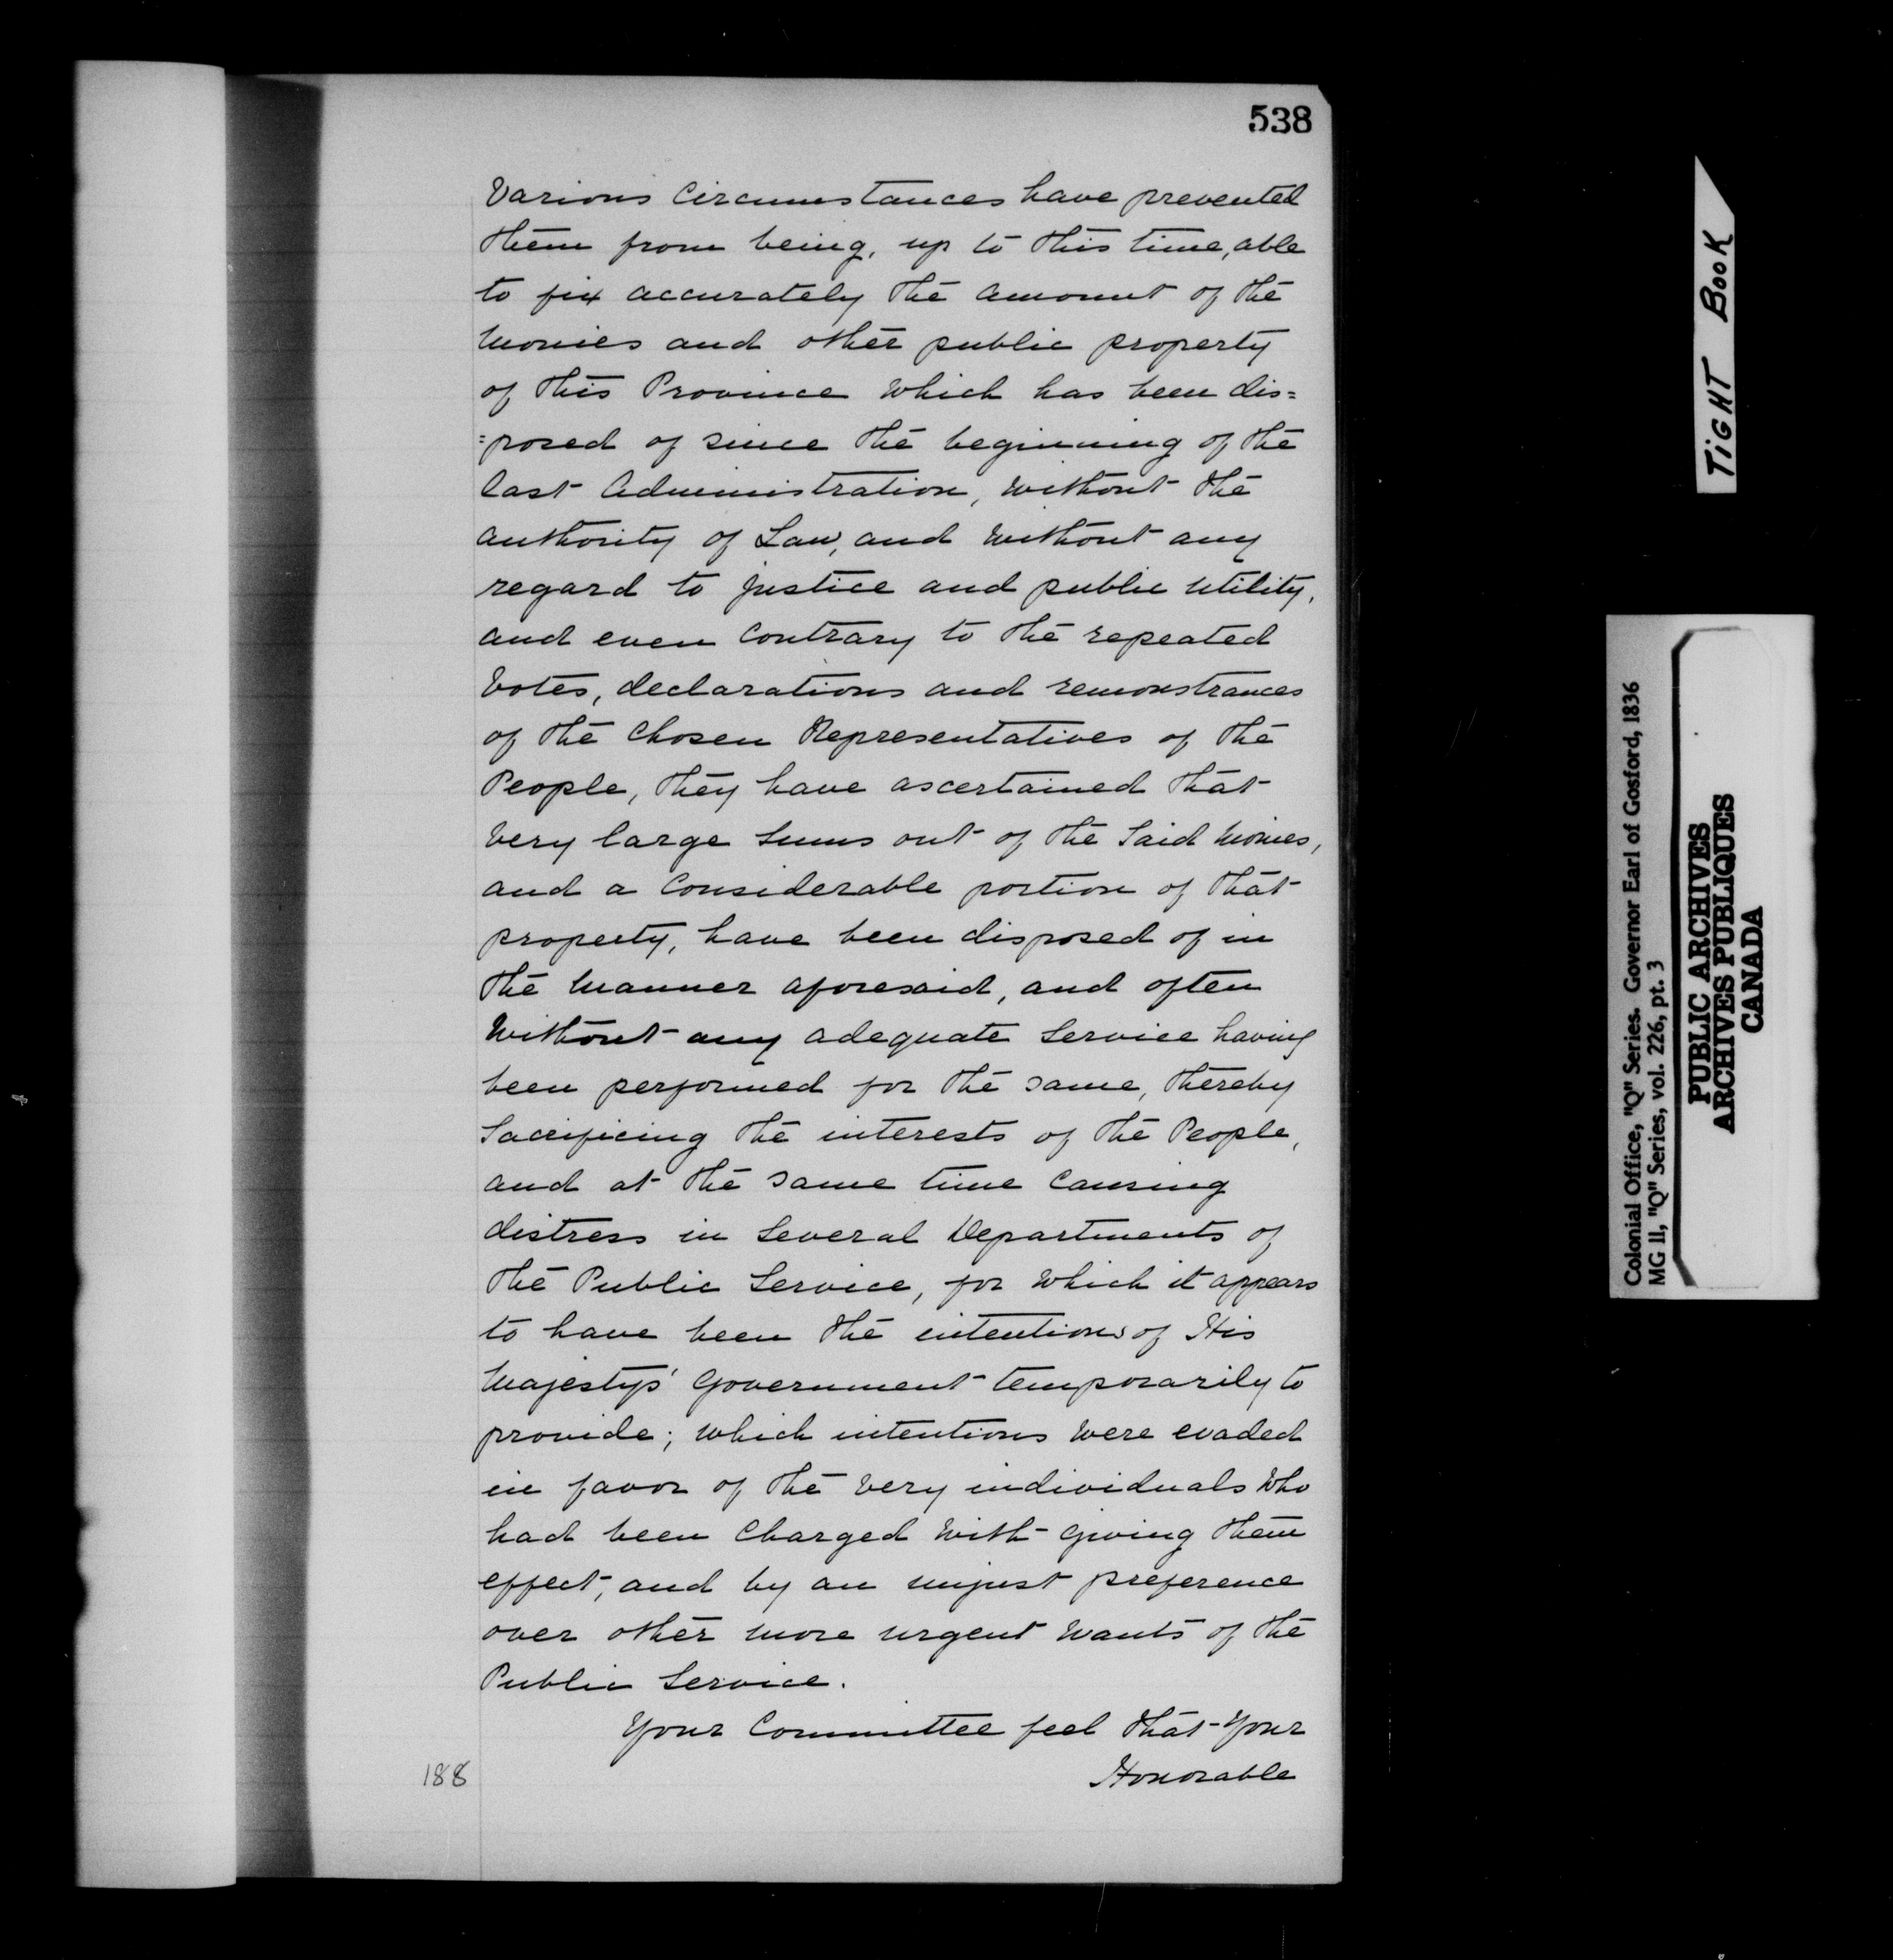 538
Various Circumstances have prevented
them from being, up to this time, able
to fix accurately the amount of the
Monies and other public property
of this Province which has been dis=
=posed of since the beginning of the
last Administration, without the
authority of Law, and without any
regard to justice and public utility,
and even Contrary to the repeated
Votes, declarations and remonstrances
of the Chosen Representatives of the
People, they have ascertained that
very large Sums out of the Said Monies,
and a Considerable portion of that
property, have been disposed of in
the Manner aforesaid, and often
Without any adequate Service having
been performed for the same, thereby
Sacrificing the interests of the People,
and at the same time Causing
distress in Several Departments of
the Public Service, for which it appears
to have been the intentions of His
Majestys' Government temporarily to
provide; which intentions were evaded
in favor of the very individuals who
had been Charged with giving them
effect, and by an unjust preference
over other more urgent wants of the
Public Service.
Your Committee feel that Your
Honorable
188
TIGHT BOOK
Colonial Office, "Q" Series. Governor Earl of Gosford, 1836
MG 11, "Q" Series, vol. 226, pt. 3
PUBLIC ARCHIVES
ARCHIVES PUBLIQUES
CANADA